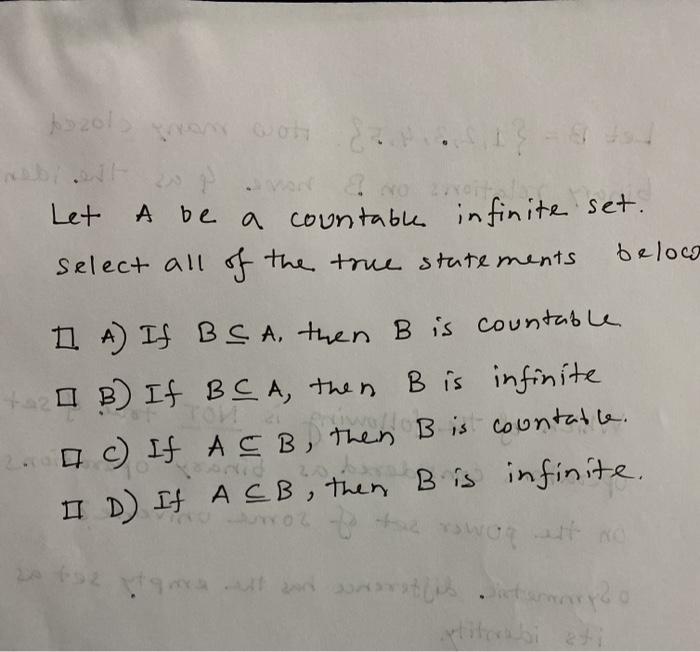 Let A be a countable infinite set.
Select all of the true statements below
A) If B ⊆ A, then B is countable
B) If B ⊆ A, then B is infinite
C) If A ⊆ B, then B is countable.
D) If A ⊆ B, then B is infinite.